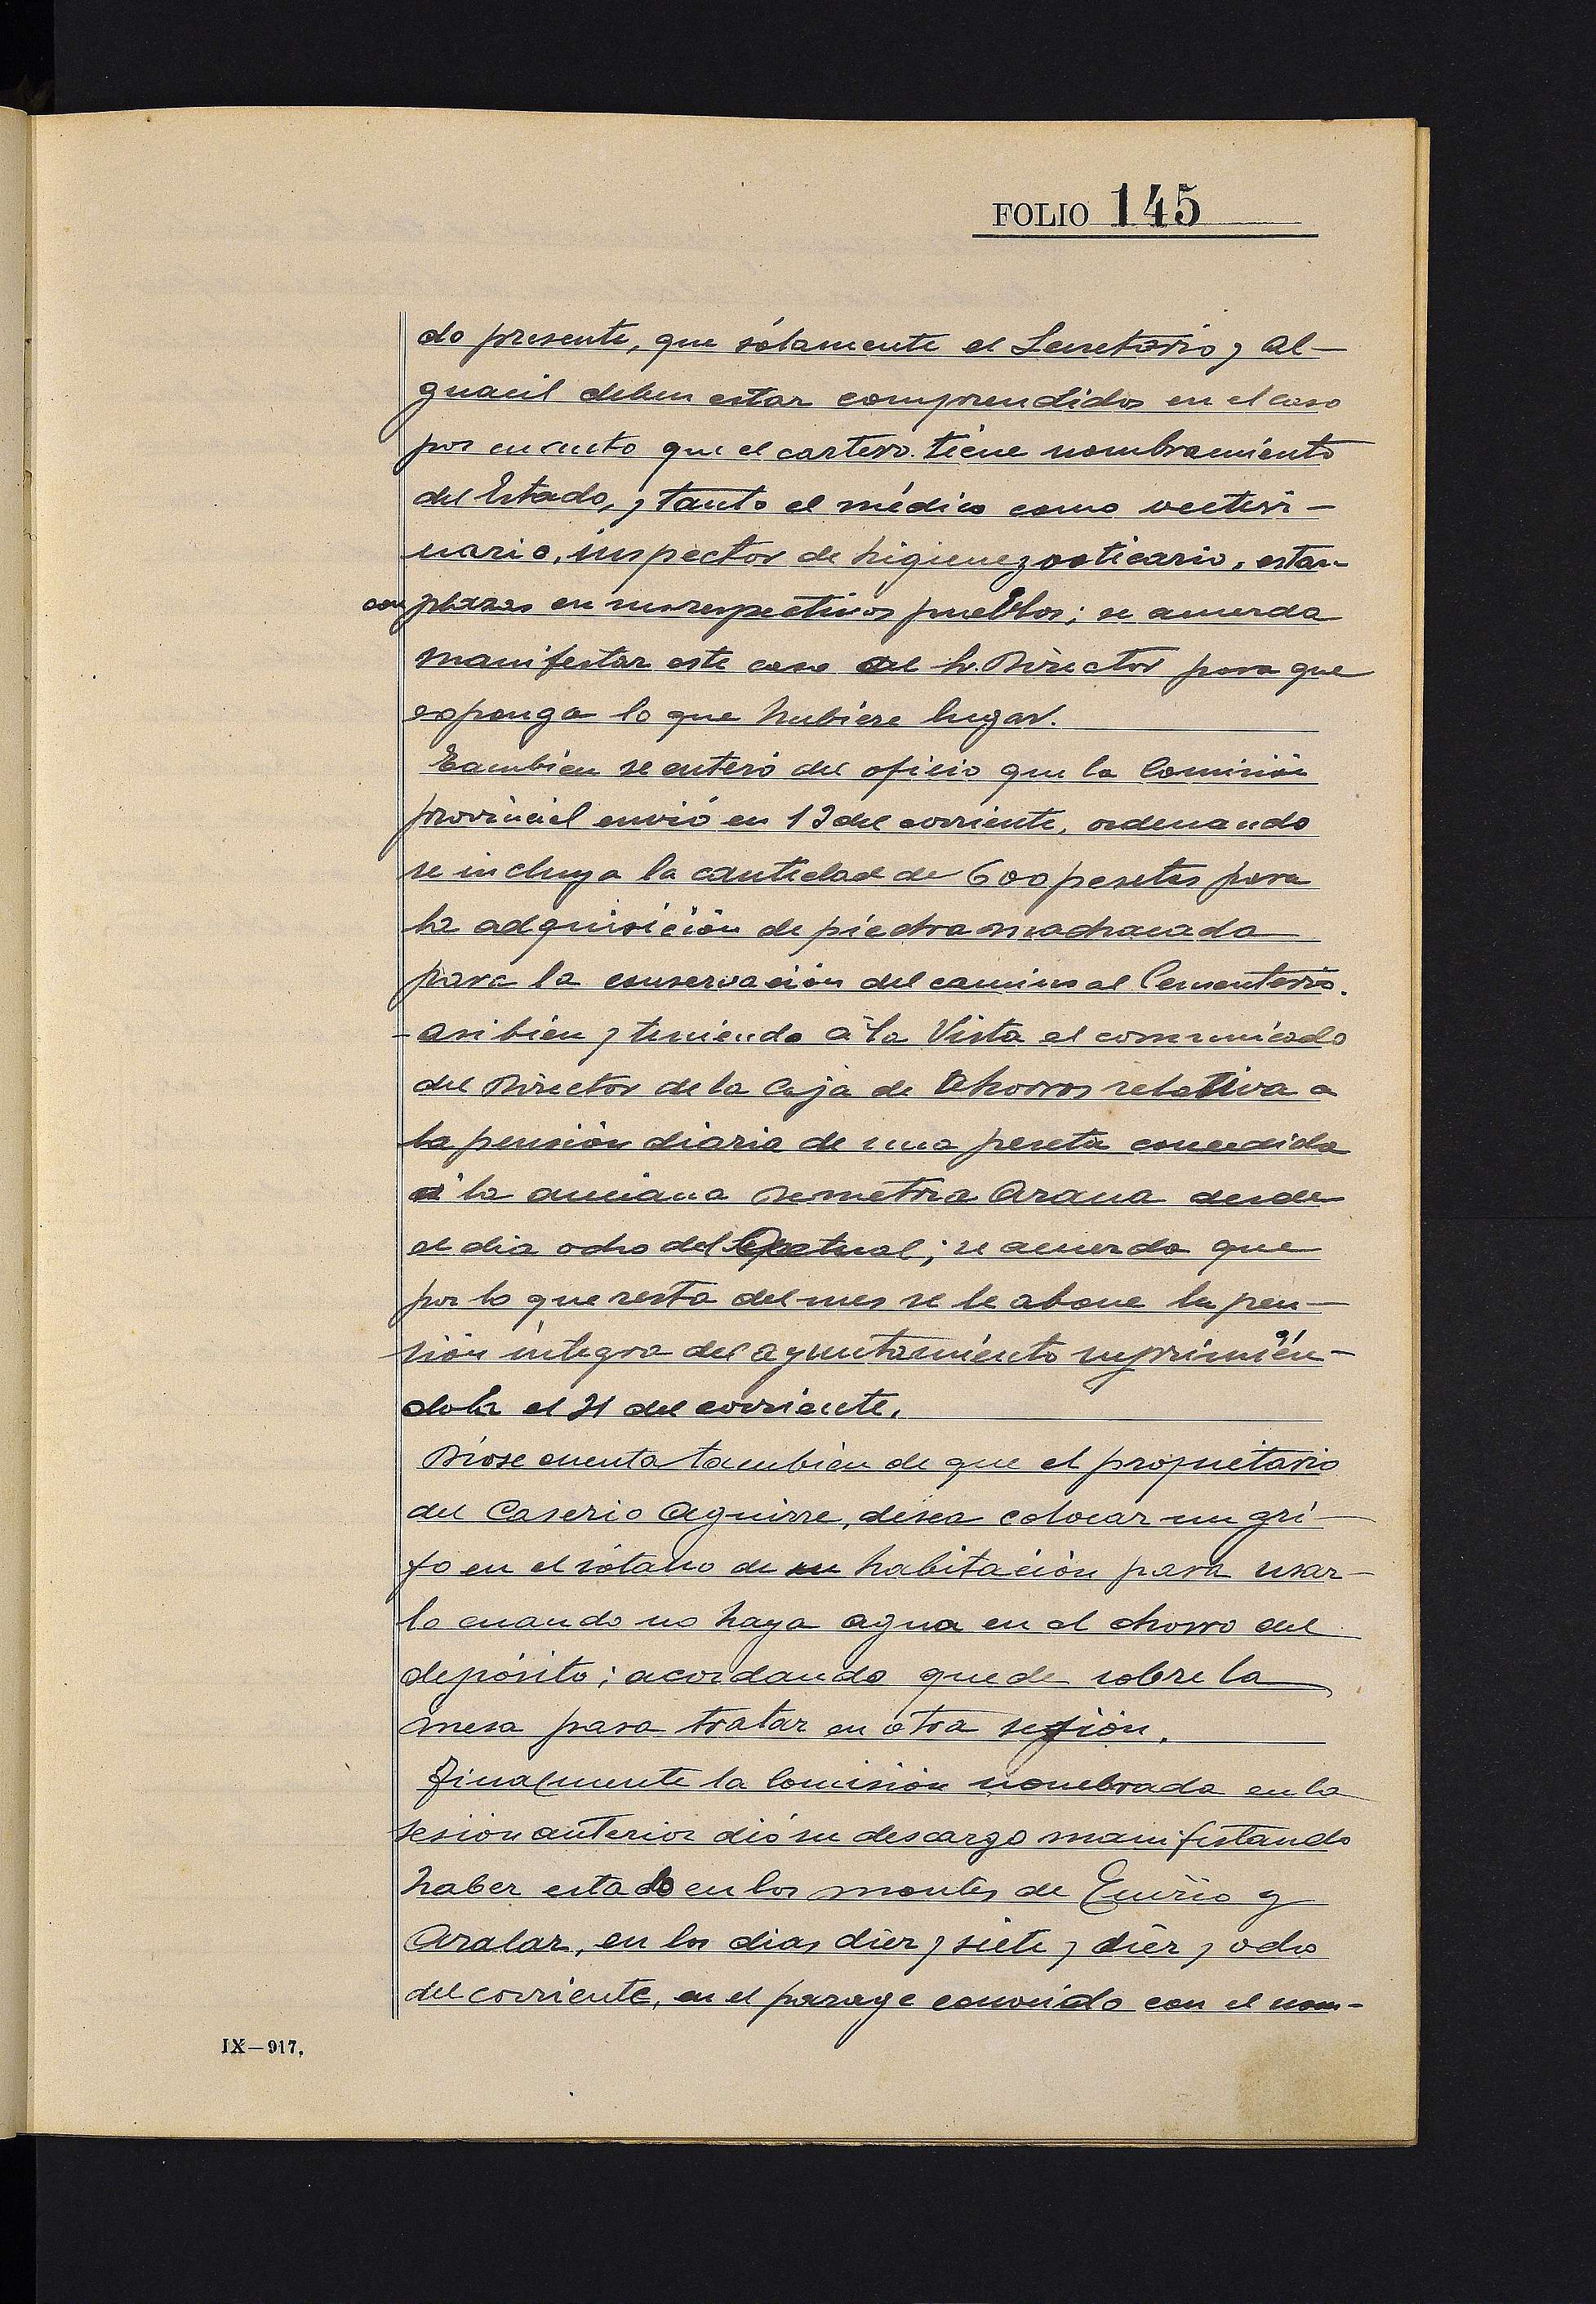 FOLIO 145
do presente, que sólamente el Secretario y Al-
guacil deben estar comprendidos en el caso
por cuanto que el cartero tiene nombramiento
del Estado, y tanto el médico como vecteri-
nario, inspector de higiene y boticario, estan
con plazas en sus respectivos pueblos; se acuerda
manifestar este caso al Sr. Director para que
exponga lo que hubiere lugar.
Tambien se enteró del oficio que la Comisión
provincial envió en 13 del corriente, ordenando
se incluya la cantidad de 600 pesetas para
la adquisición de piedra machacada
para la conservación del camino al Cementerio.
Asi bien y teniendo á la Vista el comunicado
del Director de la Caja de Ahorros relativa a
la pensión diaria de una peseta concedida
á la anciana Demetria Arana desde
el dia ocho del actual; se acuerda que
por lo que resta del mes se le abone la pen-
sión integra del ayuntamiento suprimién-
dola el 31 del corriente.
Diose cuenta tambien de que el propietario
del Caserio Aguirre, desea colocar un gri-
fo en el sótano de su habitación para usar-
lo cuando no haya agua en el chorro del
depósito; acordando quede sobre la
mesa para tratar en otra sesión.
Finalmente la Comisión nombrada en la
sesión anterior dió su descargo manifestando
haber estado en los montes de Enirio y
Aralar, en los dias diez y siete y diez y ocho
del corriente, en el parage conocido con el nom-
IX—917.